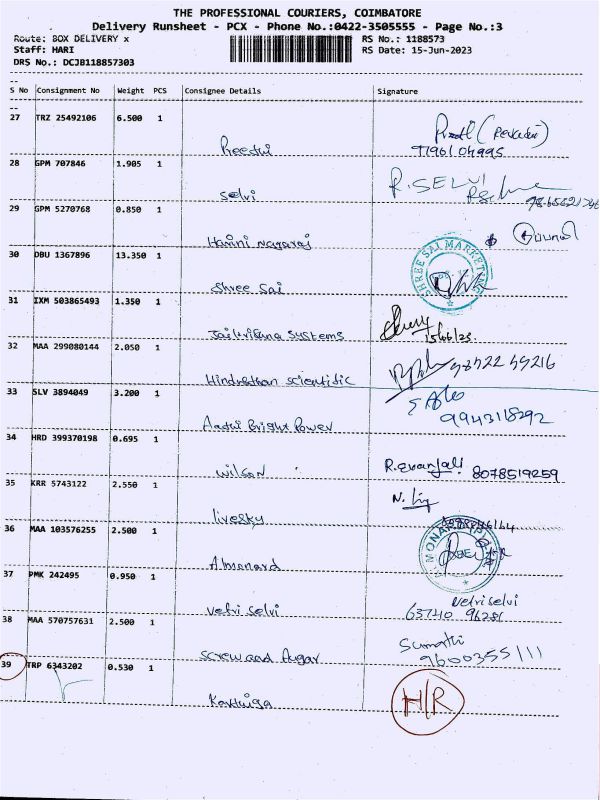 THE PROFESSIONAL COURIERS, COIMBATORE
Delivery Runsheet - PCX - Phone No.:0422-3505555 - Page No.:3
Route: BOX DELIVERY x
RS No.: 1188573
Staff: HARI
RS Date: 15-Jun-2023
DRS No.: DCJB118857303
S No Consignment No Weight PCS Consignee Details Signature
27 TRZ 25492106 6.500 1
Preethi
28 GPM 707846 1.905 1
R. SELVI
Selvi
29 GPM 5270768 0.850 1
Harini Nagaraj
30 DBU 1367896 13.350 1
SHREE SAI MARKETING
Shree Sai
31 IXM 503865493 1.350 1
Systems
15/06/23
32 MAA 299080144 2.050 1
Hindusthan scientific
33 SLV 3894049 3.200 1
Bright Power
9943118292
34 HRD 399370198 0.695 1
Wilson
8078519259
35 KRR 5743122 2.550 1
livesky
36 MAA 103576255 2.500 1
Almonard
37 PMK 242495 0.950 1
Vetri selvi
Vetriselvi
63740 96281
38 MAA 570757631 2.500 1
Screw and Augar
Sumathi
9600355111
39 TRP 6343202 0.530 1
Karthiga
H/R